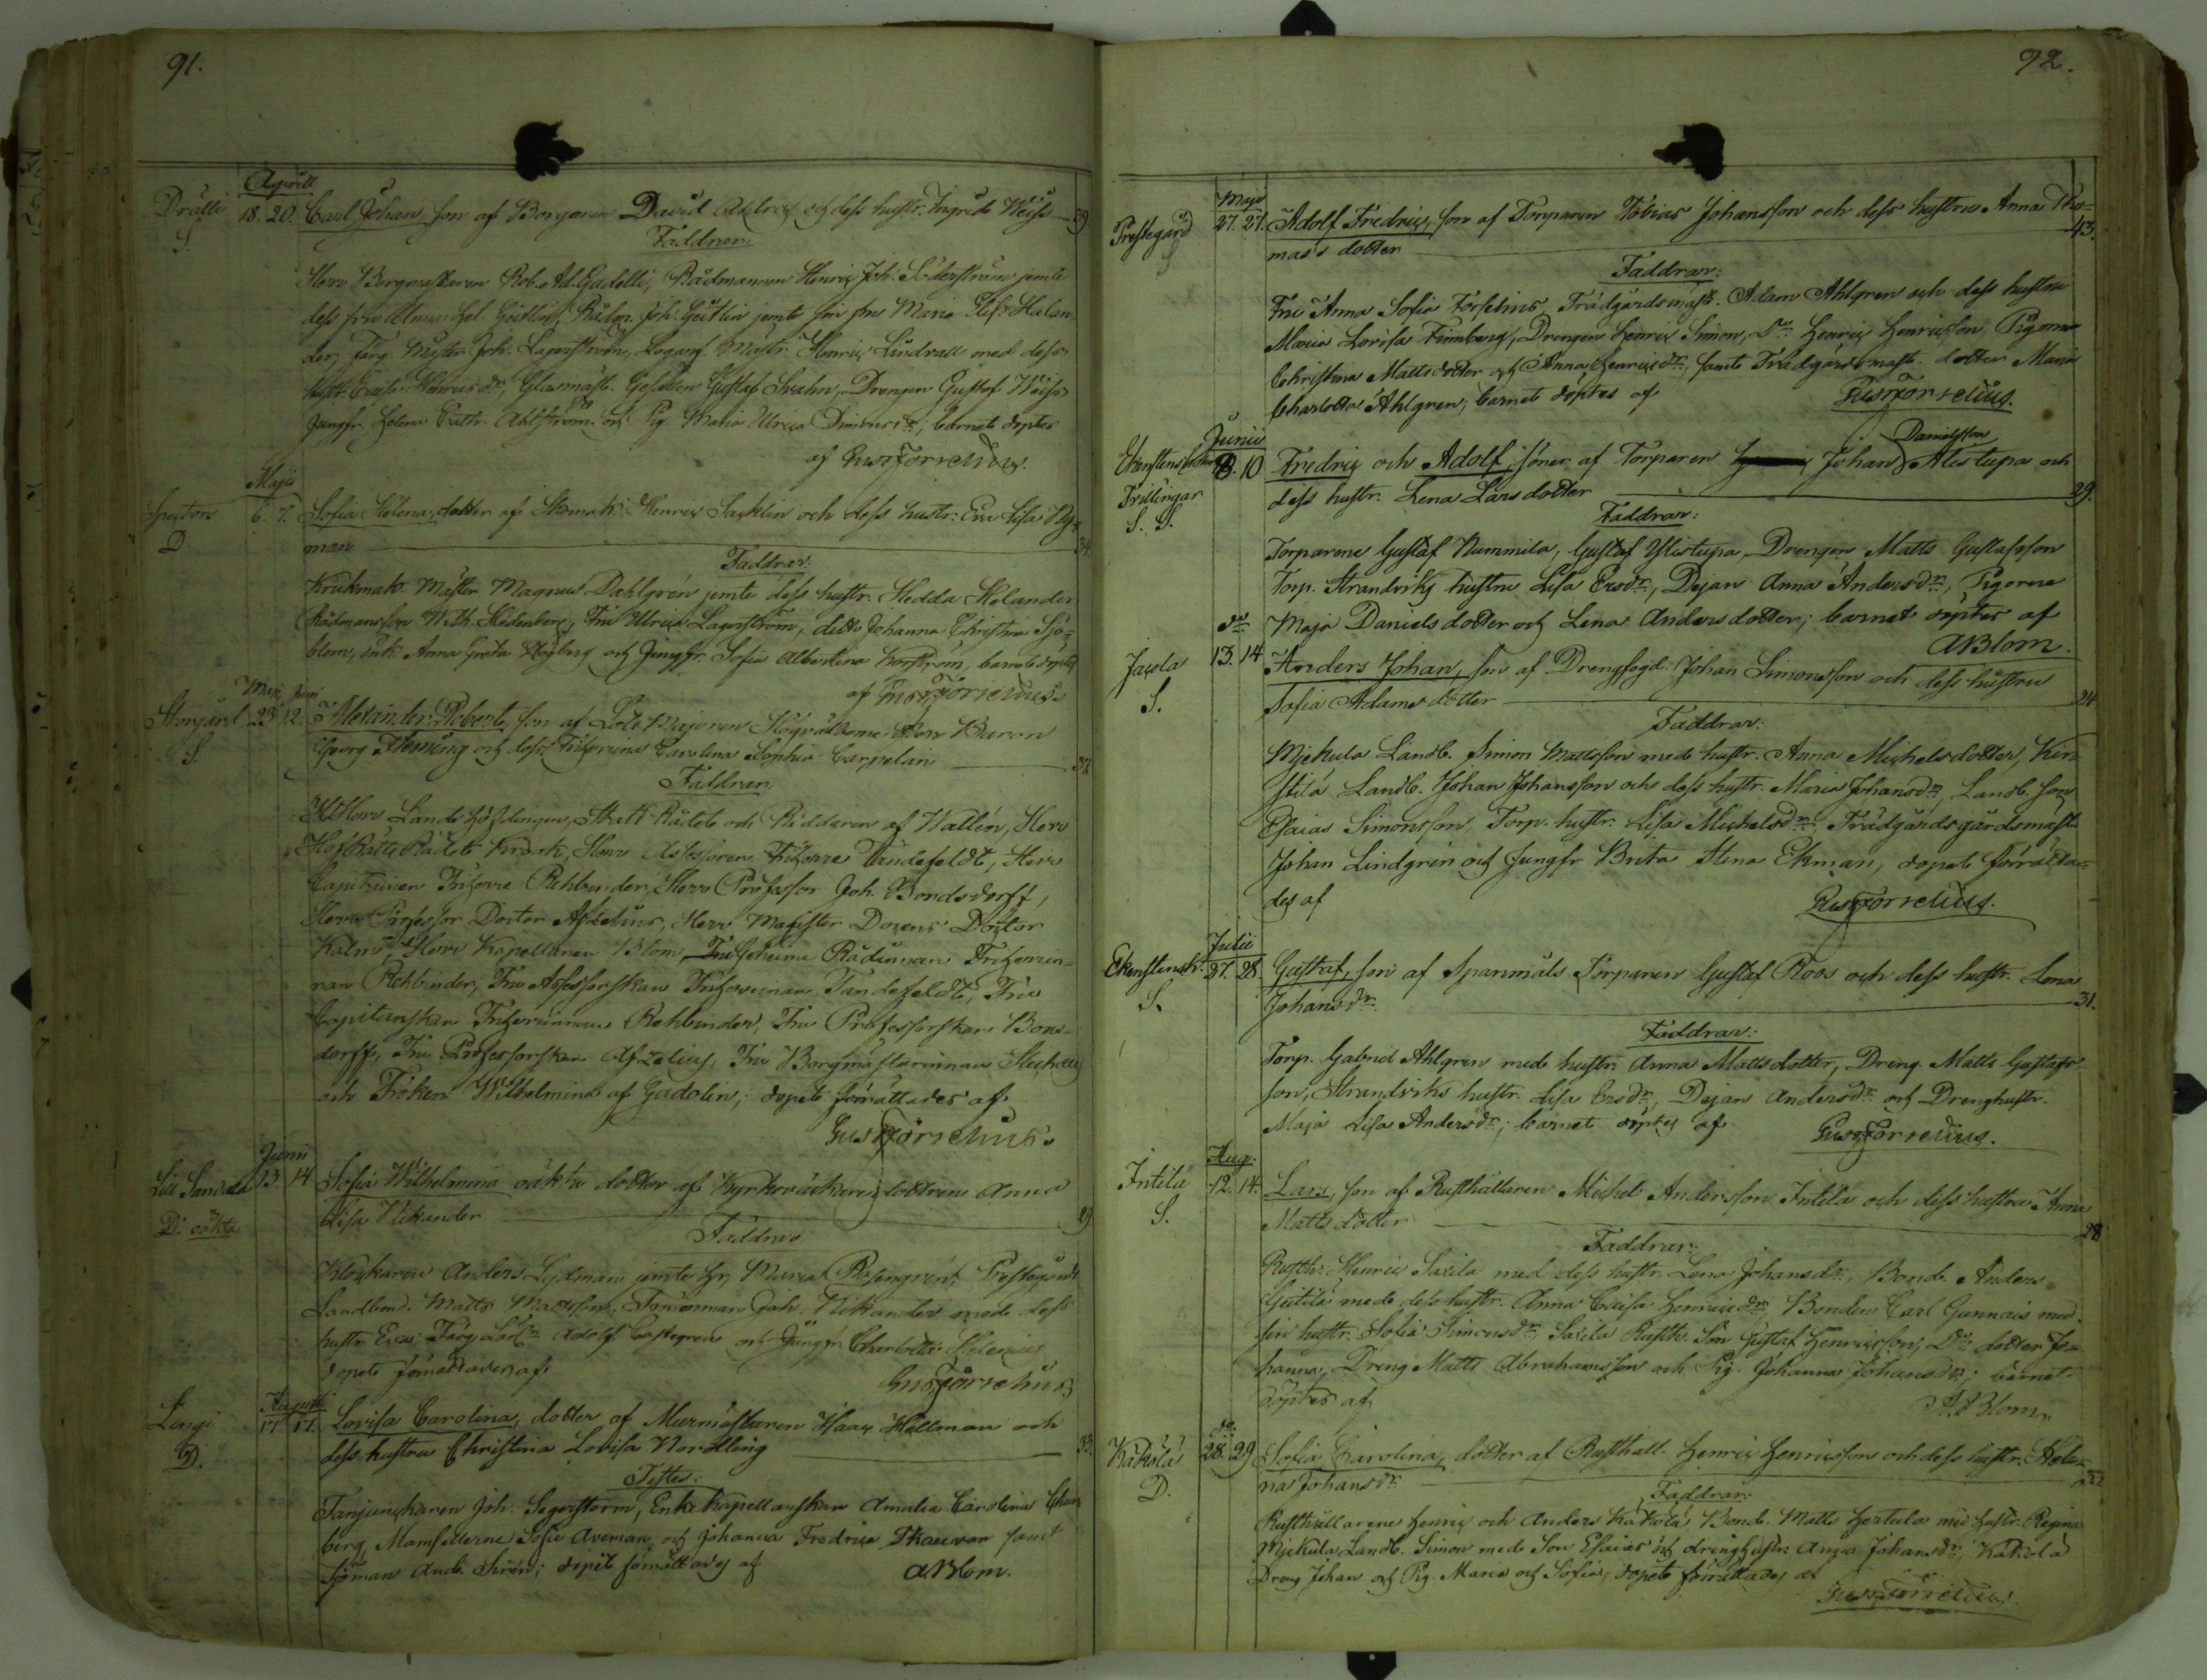 91.
Aprill
Drälli 18. 20. Carl Johan, son af Borgaren David Ahlrot och dess hustr. Ingrid Weiss 39
S.
Faddrar:
Herr Borgmästaren Rob. Ad. Gadolli, Rådmannen Henric Joh. Söderström jemte
dess fru Ulrica Hel. Geitlin, Rådm. Joh. Geitlin jemte sin fru Maria Elis. Helan-
der, Färg. Mäster Joh. Lagerström, Logarf. Mästr. Henric Lindvall med dess
hustr. Caisa Henricsdr, Glasmäst. Gesällen Gustaf Svahn, Drengen Gustaf Weiss
Jungfr. Helena Cath. Ahlström och Pig. Maria Ulrica Simonsdr; barnet döptes
af Gust Forselius.
Maji
D 6. 7. Sofia Helena, dotter af Skomak. Henric Sacklin och dess hustr. Eva Lisa Ny-
man 34
Faddrar:
Krukmak. Mäster Magnus Dahlgren jemte dess hustr. Hedda Helander
Rådmansson W. Th. Hedenberg, Fru Ulrica Lagerström, ditto Johanna Christina Sjö-
blom, enk. Anna Greta Högberg och Jungfr. Sofia Albertina Korström, barnet döptes
af Gust Forselius.
Maji Junii
23 12. Alexander Robert, son af Majoren Högvälborne Herr Baron
S. Georg Fleming och dess Friherrinna Carolina Sophia Carpelan 37
Faddrar:
Herr Landshöfdingen, Stats Rådet och Riddaren af Wallén, Herr
Hofrätts Rådet Krook, Herr Assessoren Friherre Tandefeldt, Herr
Capitainen Friherre Rehbinder, Herr Professor Joh. Bondsdorff,
Herr Professor Doctor Afzelius, Herr Magister Docens Doctor
Kalm, Herr Kapellanen Blom, Fru Geheime Rådinnan Friherrin-
nan Rehbinder, Fru Assessorskan Friherrinnan Tandefeldt, Fru
Capitenskan Friherrinnan Rehbinder, Fru Professorskan Bons-
dorff, Fru Professorskan Afzelius, Fru Borgmästarinnan
och Fröken Wilhelmina af Gadolin; dopet förrättades af
Gust Forselius.
Junii
13 14 Sofia Wilhelmina oäkta dotter af Kyrkoväktare dottren Anna
D. oäkta Lisa Nikander 29
Faddrar
Klockaren Anders Lydman jemte Maria Rosengren, Prestegårds
Landbond. Matts Mattsson, Timmerman Joh. Nikander med dess
hustr. Eva, Färg. Lärl. Adolf Castegren och Jungfr. Charlotta Helenius
dopet förrättades af
Gust Forselius
Augusti
Lingi 17 17. Lovisa Carolina, dotter af Murmästaren Isaac Hellman och
D. dess hustru Christina Lovisa Nordling 33.
Testes:
Fanjunkaren Joh. Segerstorm, Enke kapellanskan Amalia Carolina
berg, Mamsellerne Sofie Aveman och Johanna Fredrica Skauvon samt
Sjöman And. Sirén; dopet förrättades af
A Blom.
92.
Maji
Prestegård 27. 27. Adolf Fredric, son af Torparen Tobias Johansson och dess hustru Anna Tho-
S mas dotter 43.
Faddrar:
Fru Anna Sofia Forselius, Trädgårdsmäst. Adam Ahlgren och dess hustru
Maria Lovisa Finnberg, Drengen Henric Simon, Do Henric Henricsson, Pigorna
Christina Mattsdotter och Anna Henricsdr, samt Trädgårdsmäst. dotter Maria
Charlotta Ahlgren; barnet döptes af
Gust Forselius.
Junii
8. 10 Fredric och Adolf, söner af Torparen Johan Danielsson Alistupa och
Tvillingar dess hustr. Lena Larsdotter 29.
S. S.
Faddrar:
Torparene Gustaf Nummila, Gustaf Ylistupa, Drengen Matts Gustafsson
Torp. Strandviks hustru Lisa Ersdr, Dejan Anna Andersdr, Pigorne
Maja Danielsdotter och Lena Andersdotter; barnet döptes af
A Blom.
do
13. 14 Anders Johan, son af Drengfogd. Johan Simonsson och dess hustru
S. Sofia Adamsdotter 24
Faddrar:
Myckula Landb. Simon Mattsson med hustr. Anna Michelsdotter, Kir-
stilä Landb. Johan Johansson och dess hustr. Maria Johansdr, Landb. son
Esaias Simonsson, Torp. hustr. Lisa Michelsdr, Trädgårdsgårdsmäst.
Johan Lindgrén och Jungfr Brita Stina Ekman, dopet förrätta-
des af
Gust Forselius.
Julii
Ekenstenstr. 27. 28. Gustaf, son af Spanmåls Torparen Gustaf Roos och dess hustr. Lena
S. Johansdr 31.
Faddrar:
Torp. Gabriel Ahlgren med hustr. Anna Mattsdotter, Dreng. Matts Gustafs-
son, Strandviks hustr. Lisa Ersdr, Dejan Andersdr och Drenghustr.
Maja Lisa Andersdr; barnet döptes af Gust Forselius.
Aug:
Intilä 12. 14. Lars, son af Rusthållaren Michel Andersson Intilä och dess hustru Anna
S. Mattsdotter 28
Faddrar:
Rusth. Henric Saxila med dess hustr. Lena Johansdr, Bond. Anders
med dess hustr. Anna Caisa Henricsdr, Bonden Carl Gunnais med
sin hustr. Sofia Simonsdr, Saxila Rusth. Son Gustaf Henricsson, Do dotter Jo-
hanna, Dreng Matts Abrahamsson och Pig. Johanna Johansdr; barnet
döptes af
A Blom.
do
Kakola 28. 29 Sofia Carolina, dotter af Rusthåll. Henric Henricsson och dess hustr. Hele-
D. na Johansdr
Faddrar:
Rusthållarene Henric och Anders Kakola, Bond. Matts Hertula med hustr. Regina
Myckula Landb. Simon med Son Esaias och drenghustr. Anna Johansdr, Kakola
Dreng Johan och Pig. Maria och Sofia; dopet förrättades af
Gust Forselius.